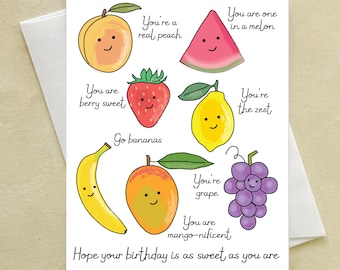 You're a
real peach
You are one
in a melon
You are
berry sweet
You're
the zest
Go bananas
You're
grape
You are
mango-nificent
Hope your birthday is as sweet as you are